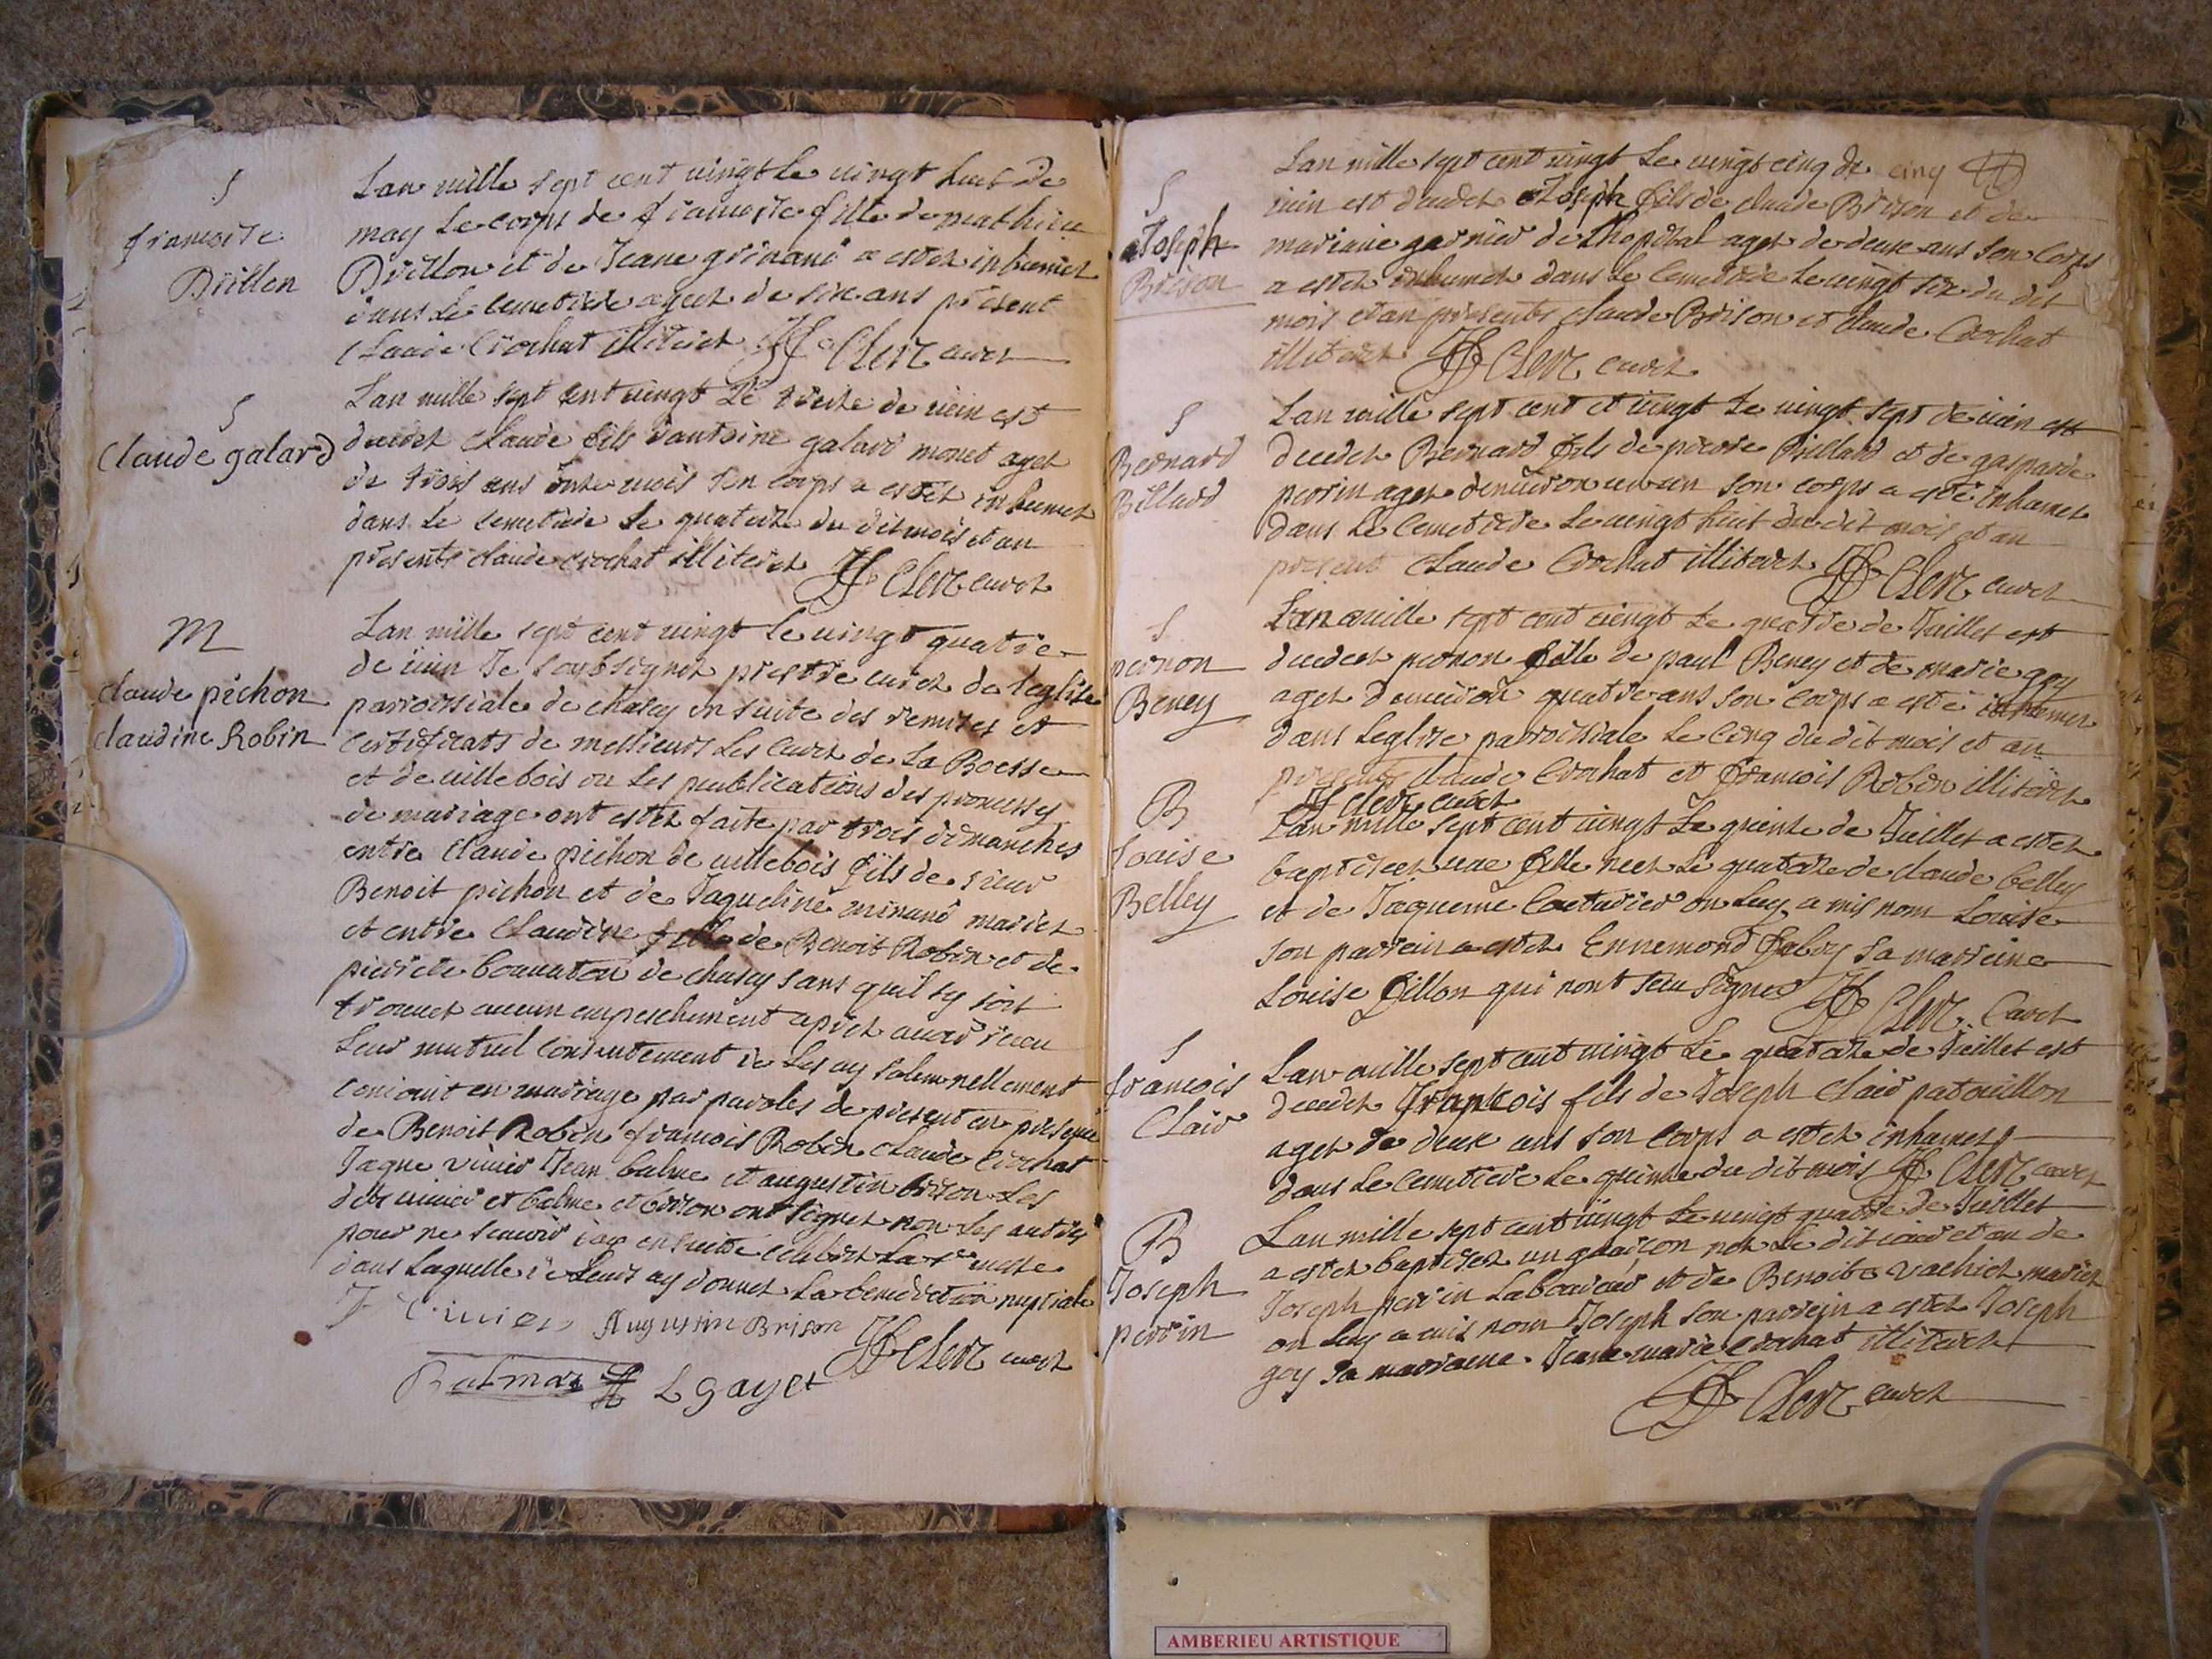 S
francoise
Drillon
Lan mille sept cent uingt le uingt huit de
may le corps de francoise fille de mathieu
Drillon et de Jeane grinand a estez inhumez
dans le cemetiere agee de six ans présent
Claude Crochat illiterez Clerc curez
S
Claude galard
Lan mille sept cent uingt le treize de iuin est
decedez claude fils dantoine galard monet agez
de trois ans onze mois son corps a estez inhumez
dans le cemetiere le quatorze du dit mois et an
présents claude crochat illiterez Clerc curez
M
claude pichon
claudine Robin
Lan mille sept cent uingt le uingt quatre
de iuin Je soubsignez prestre curez de leglise
parroissiale de chasey en suite des remises et
certificats de messieurs les curez de la Boesse
et de uillebois ou les publications des promesses
de mariage ont estez faite par trois dimanches
entre claude pichon de uillebois fils de sieur
Benoit pichon et de Jaqueline minand mariez
et entre Claudine fille de Benoit Robin et de
pierrete bonnaton de chasey sans quil sy soit
trouuez aucun empeschement aprez auoir receu
leur mutuel consentement ie les ay solemnellement
conioint en mariage par paroles de présent en présence
de Benoit Robin francois Robin claude Crochat
Jaque viuier Jean balme et augustin brison les
dits uiuier et balme et brison ont signez non les autres
pour ne scauoir iay ensuite celebrez la Ste messe
dans laquelle ie leurs ay donnez la benediction nuptiale
J Viuier Augustin Brison
Clerc curez
Balmaz L gayet
S
Joseph
Brison
Lan mille sept cent uingt le uingt cinq de cinq
iuin est decedez Joseph fils de claude Brison et de
mariane garnier de lhopital agez de deux ans son corps
a estez inhumez dans le cemetiere le uingt six du dit
mois et an présents claude Brison et claude Crochat
illiterez Clerc curez
S
Bernard
Billard
Lan mille sept cent et uingt le uingt sept de iuin est
decedez Bernard fils de pierre Billard et de gasparde
perrin agez denuiron un an son corps a esté inhumez
dans le cemetiere le uingt huit du dit mois et an
présent Claude Crochat illiterez Clerc curez
S
pernon
Beney
Lan mille sept cent uingt le quatre de Juillet est
decedez pernon fille de paul Beney et de marie goy
agez denuiron quatre ans son corps a esté inhumez
dans leglise parroissiale le cinq du dit mois et an
présents claude Crochat et francois Robin illiterez
Clerc curez
B
Louise
Belley
Lan mille sept cent uingt le quinze de Juillet a estez
baptisez une fille neez le quatorze de claude belley
et de Jaqueme Couturier on luy a mis nom Louise
son parrein a estez Ennemond falcoz sa marreine
Louise fillon qui nont sceu signer Clerc Curez
S
francois
Clair
Lan mille sept cent uingt le quatorze de Juillet est
decedez francois fils de Joseph Clair patouillon
agez de deux ans son corps a estez inhumez
dans le cemetiere le quinze du dit mois Clerc curez
B
Joseph
perrin
Lan mille sept cent uingt le uingt quatre de Juillet
a estez baptisez un garçon nez le dit iour et an de
Joseph perrin laboureur et de Benoite vachiez mariez
on luy a mis nom Joseph son parrein a estez Joseph
goy sa marraine Jeane marie Crochat illiterez
Clerc curez
AMBERIEU ARTISTIQUE